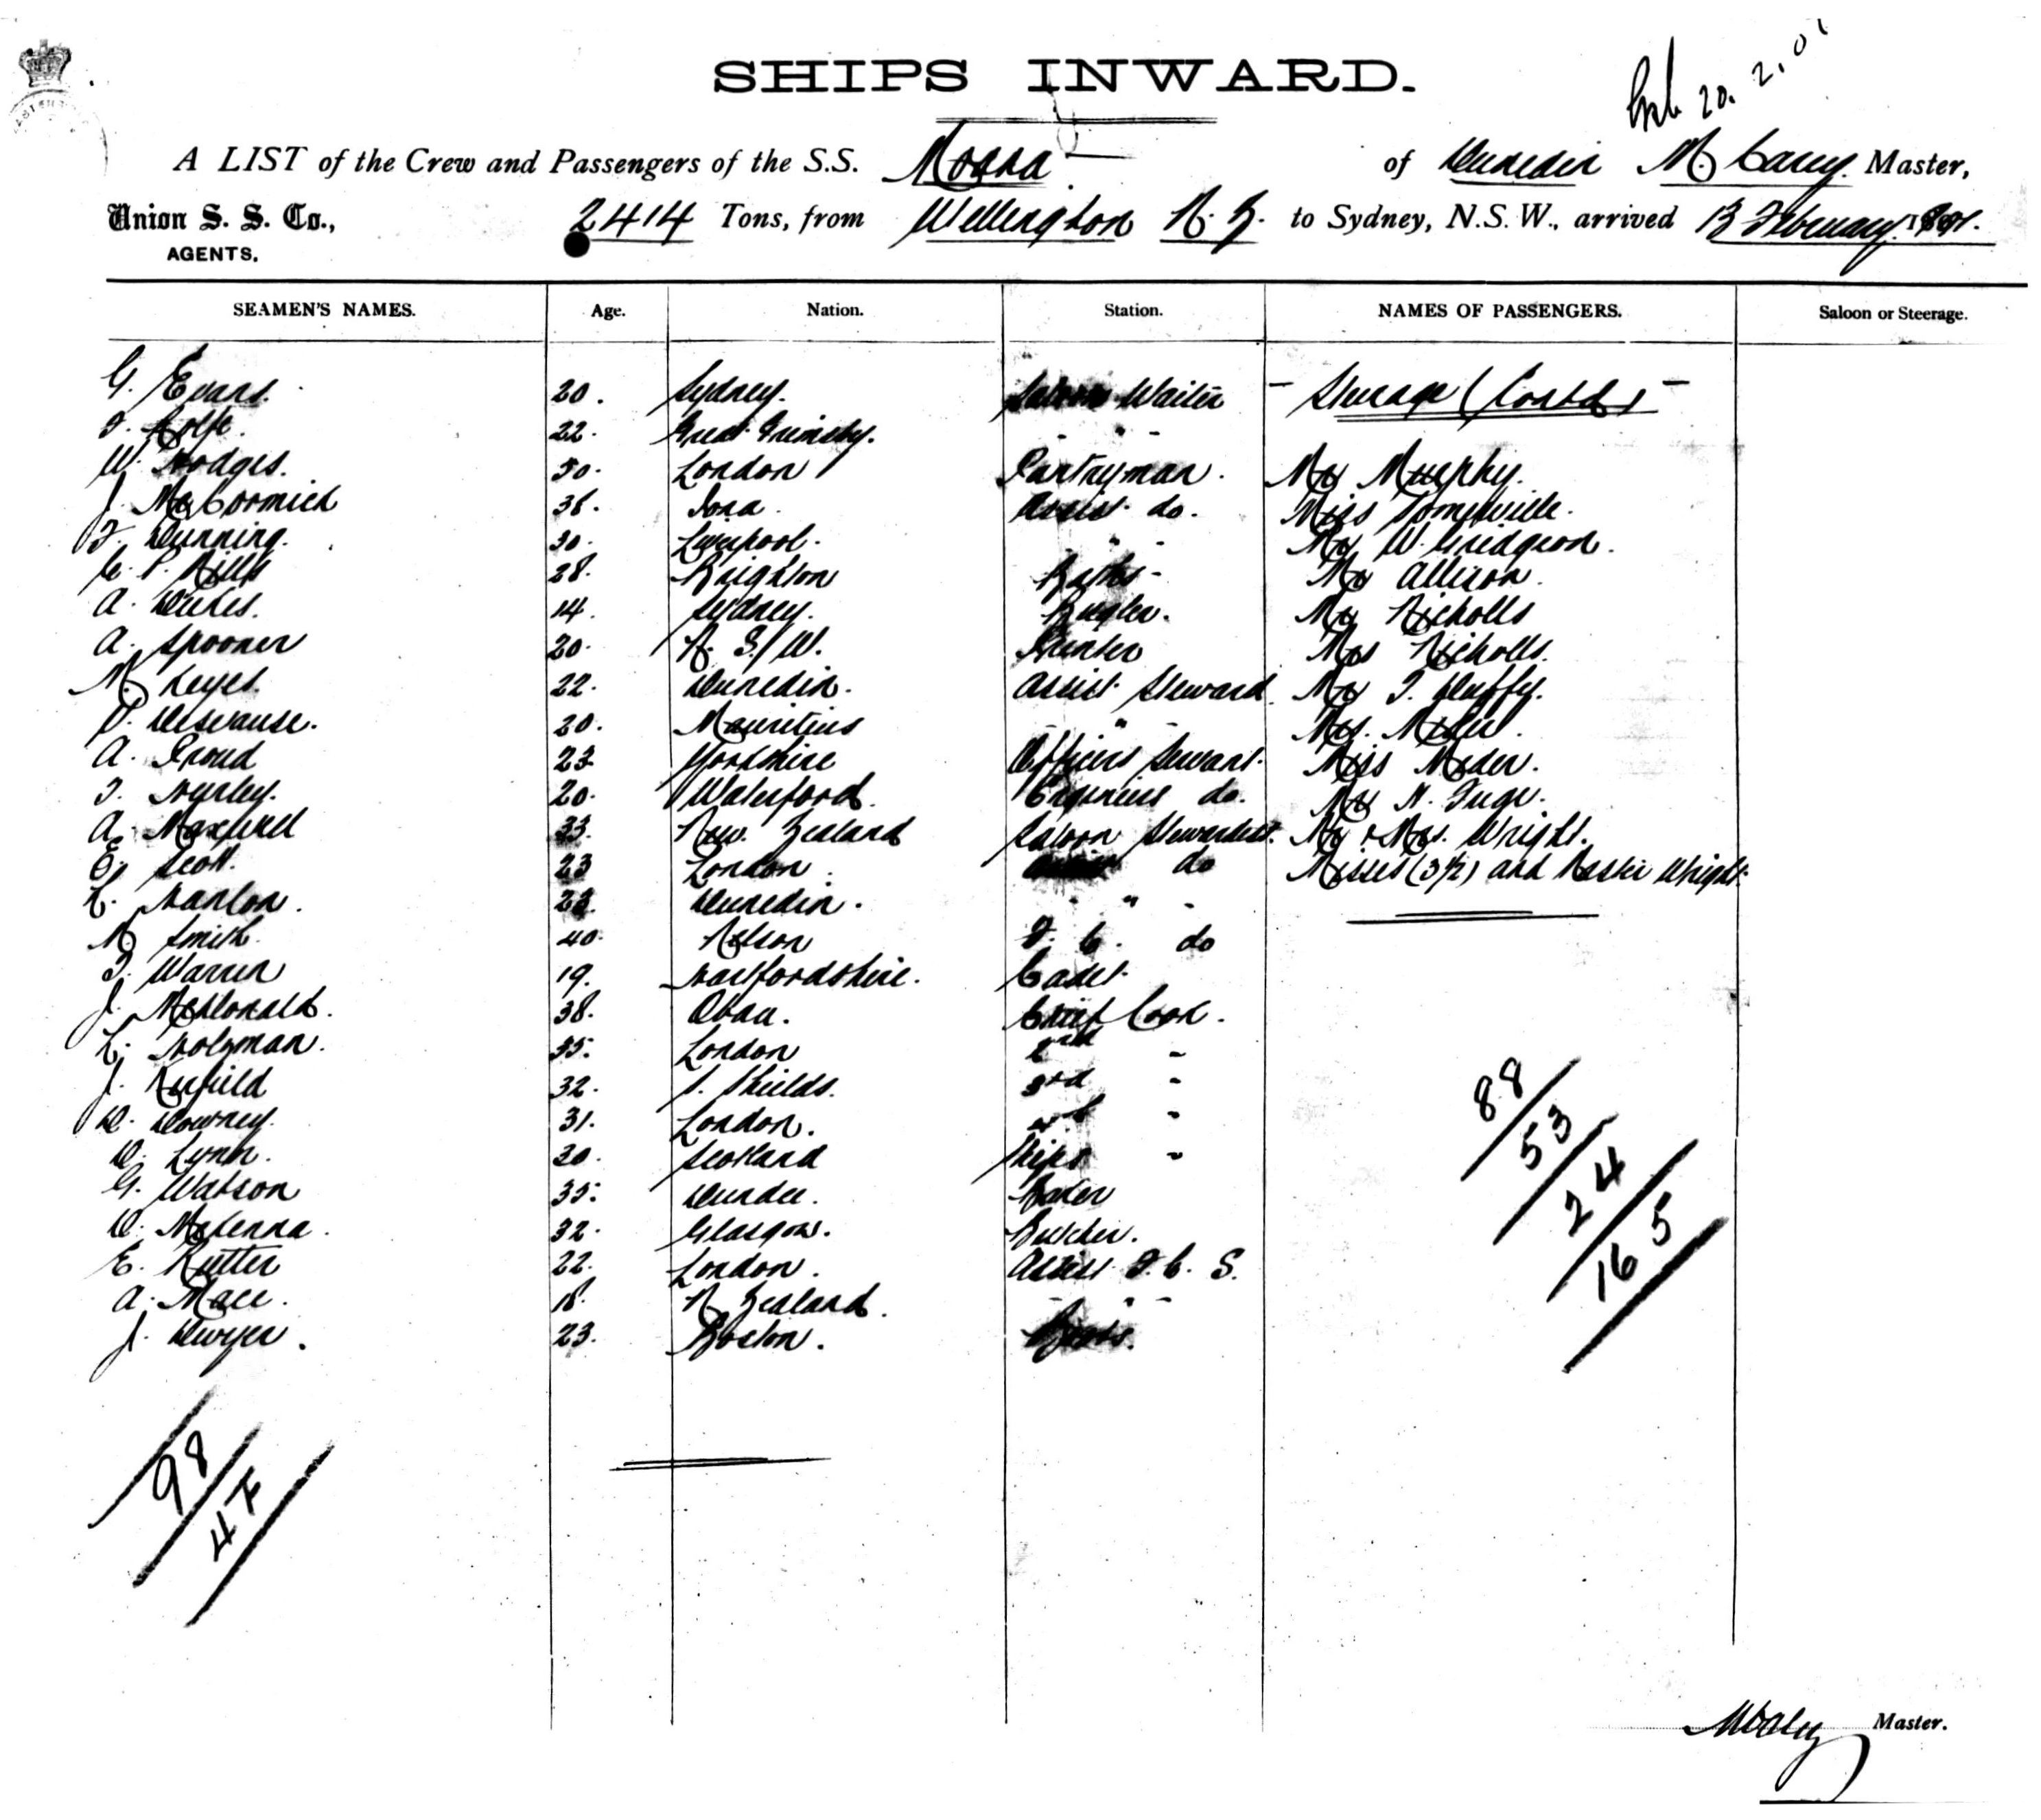 SHIPS INWARD.
20. 2. 01
A LIST of the Crew and Passengers of the S.S. Moana of Dunedin M. Carey. Master,
Union S. S. Co., AGENTS. 2414 Tons, from Wellington N. Z. to Sydney, N.S.W., arrived 13 February 1901.
SEAMEN'S NAMES. Age. Nation. Station. NAMES OF PASSENGERS. Saloon or Steerage.
G. Evans. 20. Sydney. Saloon Waiter - Steerage (Contd) -
F. Rolfe. 22. Great Grimsby. - " -
W. Hodges. 50. London Pantryman. Mr Murphy.
J. McCormick 38. Iona. Assist. do. Miss Somerville.
F. Dunning. 30. Liverpool. - " - Mr W.
C. P. Mills 28. Brighton Baths - Mr Allison.
A. Dukes. 14. Sydney. Bugler. Mr Nicholls
A. Spooner 20. N. S. W. Printer Mrs Nicholls.
M. Keyes. 22. Dunedin. Assist. Steward. Mr J. Duffy.
20. Mauritius - " - Mrs. Meder.
A. Proud 23 Yorkshire Officers Servant. Miss Meder.
T. Hurley. 20. Waterford. Engineers do. Mr N.
A. Maxwell 33. New Zealand Saloon Stewardess. Mr & Mrs. Wright.
E. Scott. 23 London. do Misses (3 1/2) and Master Wright.
L. Hanlon. 23. Dunedin. - " -
M. Smith. 40. Nelson F. C. do
T. Warren 19. Hartfordshire. Cadet.
J. McDonald. 38. Oban. Chief Cook.
L. Holzman. 35. London 2nd "
J. 32. S. Shields. 3rd "
D. Downey. 31. London. "
D. Lynn. 30. Scotland Ships "
G. Watson 35. Dundee. Baker
D. McKenna. 32. Glasgow. Butcher.
E. Rutter 22. London. Assist F. C. S.
A. Mace. 18. N Zealand. - " -
J. Dwyer. 23. Boston. Boots.
88
53
24
165
98
47
Master.